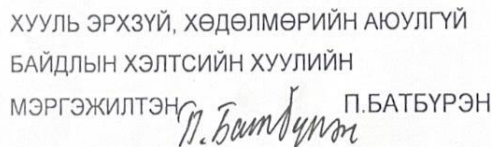 ХУУЛЬ ЭРХЗҮЙ, ХӨДӨЛМӨРИЙН АЮУЛГҮЙ
БАЙДЛЫН ХЭЛТСИЙН ХУУЛИЙН
МЭРГЭЖИЛТЭН П.Батбүрэн П.БАТБҮРЭН